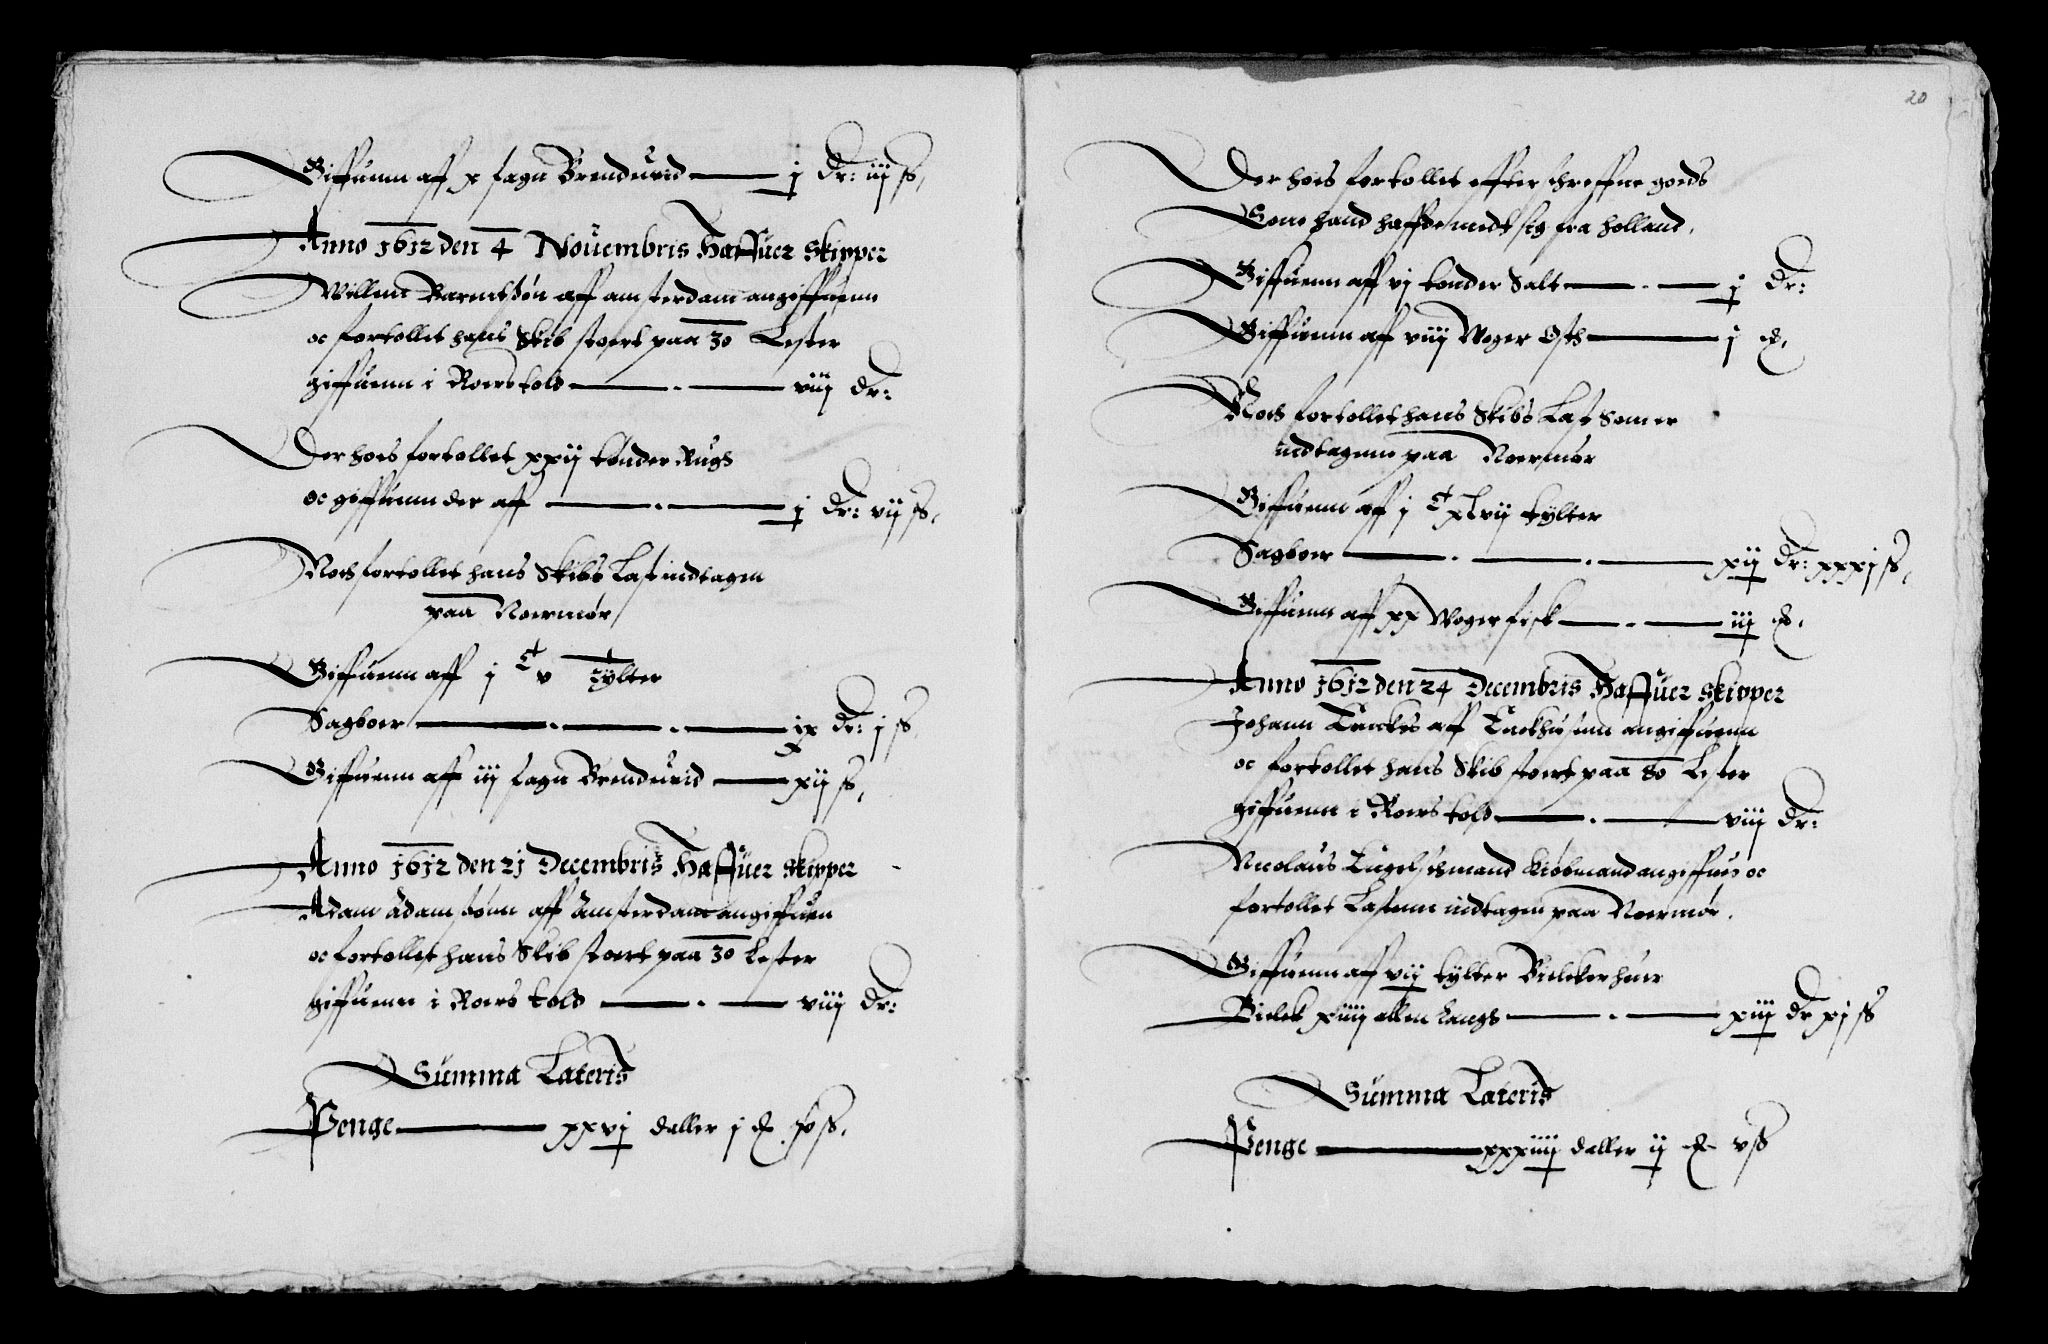 Giffuenn aff x fagn Brendeuid j Dr: iij ß,
Anno 1612 den 4 Nouembris Haffuer Skipper
Willem Barentsøn aff amsterdam angiffuenn
oc fortollet hans Skib stoert paa 30 Lester
giffuenn i Roerstold viij dr:
Der hoes fortollet xxij tønder Rugh
oc giffuenn der aff j dr: vij ß,
Noch fortollet hans Skibs Last indtagen
paa Noermør
Giffuenn aff j C v tylter
Sagboer ix dr: j ß
Giffuenn aff iij fagn Brendeuid xij ß,
Anno 1612 den 21 Decembris Haffuer Skipper
Adam Adamsønn aff Amsterdam angiffuen
oc fortollet hans Skib stoert paa 30 Lester
giffuenn i Roers told viij Dr:
Summa Lateris
Penge xxvj daller j
20
Der hoes fortollet effter schreffne goeds
Som hand haffde medt sig fra Holland,
Giffuenn aff vj tønder Salt j Dr:
Giffuenn aff viij Woger Osth j
Noch fortollet hans Skibs Last Som er
indtagenn paa Noermør
Giffuenn aff j C xlvij tylter
Sagboer xij Dr: xxxj ß,
Giffuenn aff xx Woger fisk iij
Anno 1612 den 24 Decembris Haffuer Skipper
Johann aff angiffuenn
oc fortollet hans Skib stoert paa 80 Lester
giffuenn i Roers told viij Dr:
Nicolaus Kiøbmand angiffues oc
fortollet Lastenn indtagen paa Noermør.
Giffuenn aff vij tylter Bielcker huer
Bielck xiiij allen Langs xiij dr xj ß
Summa Lateris
Penge xxxiiij daller ij v ß